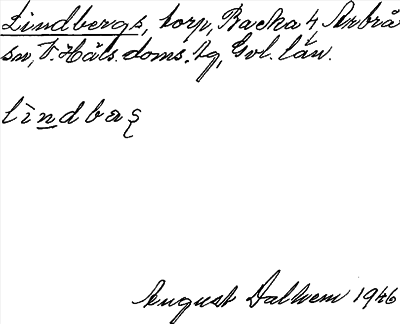 Lindbergs, torp, Backa 4, Arbrå
sn, V. Häls. doms. tg, Gvl. län.
lìndbaș
August Dalhem 1946